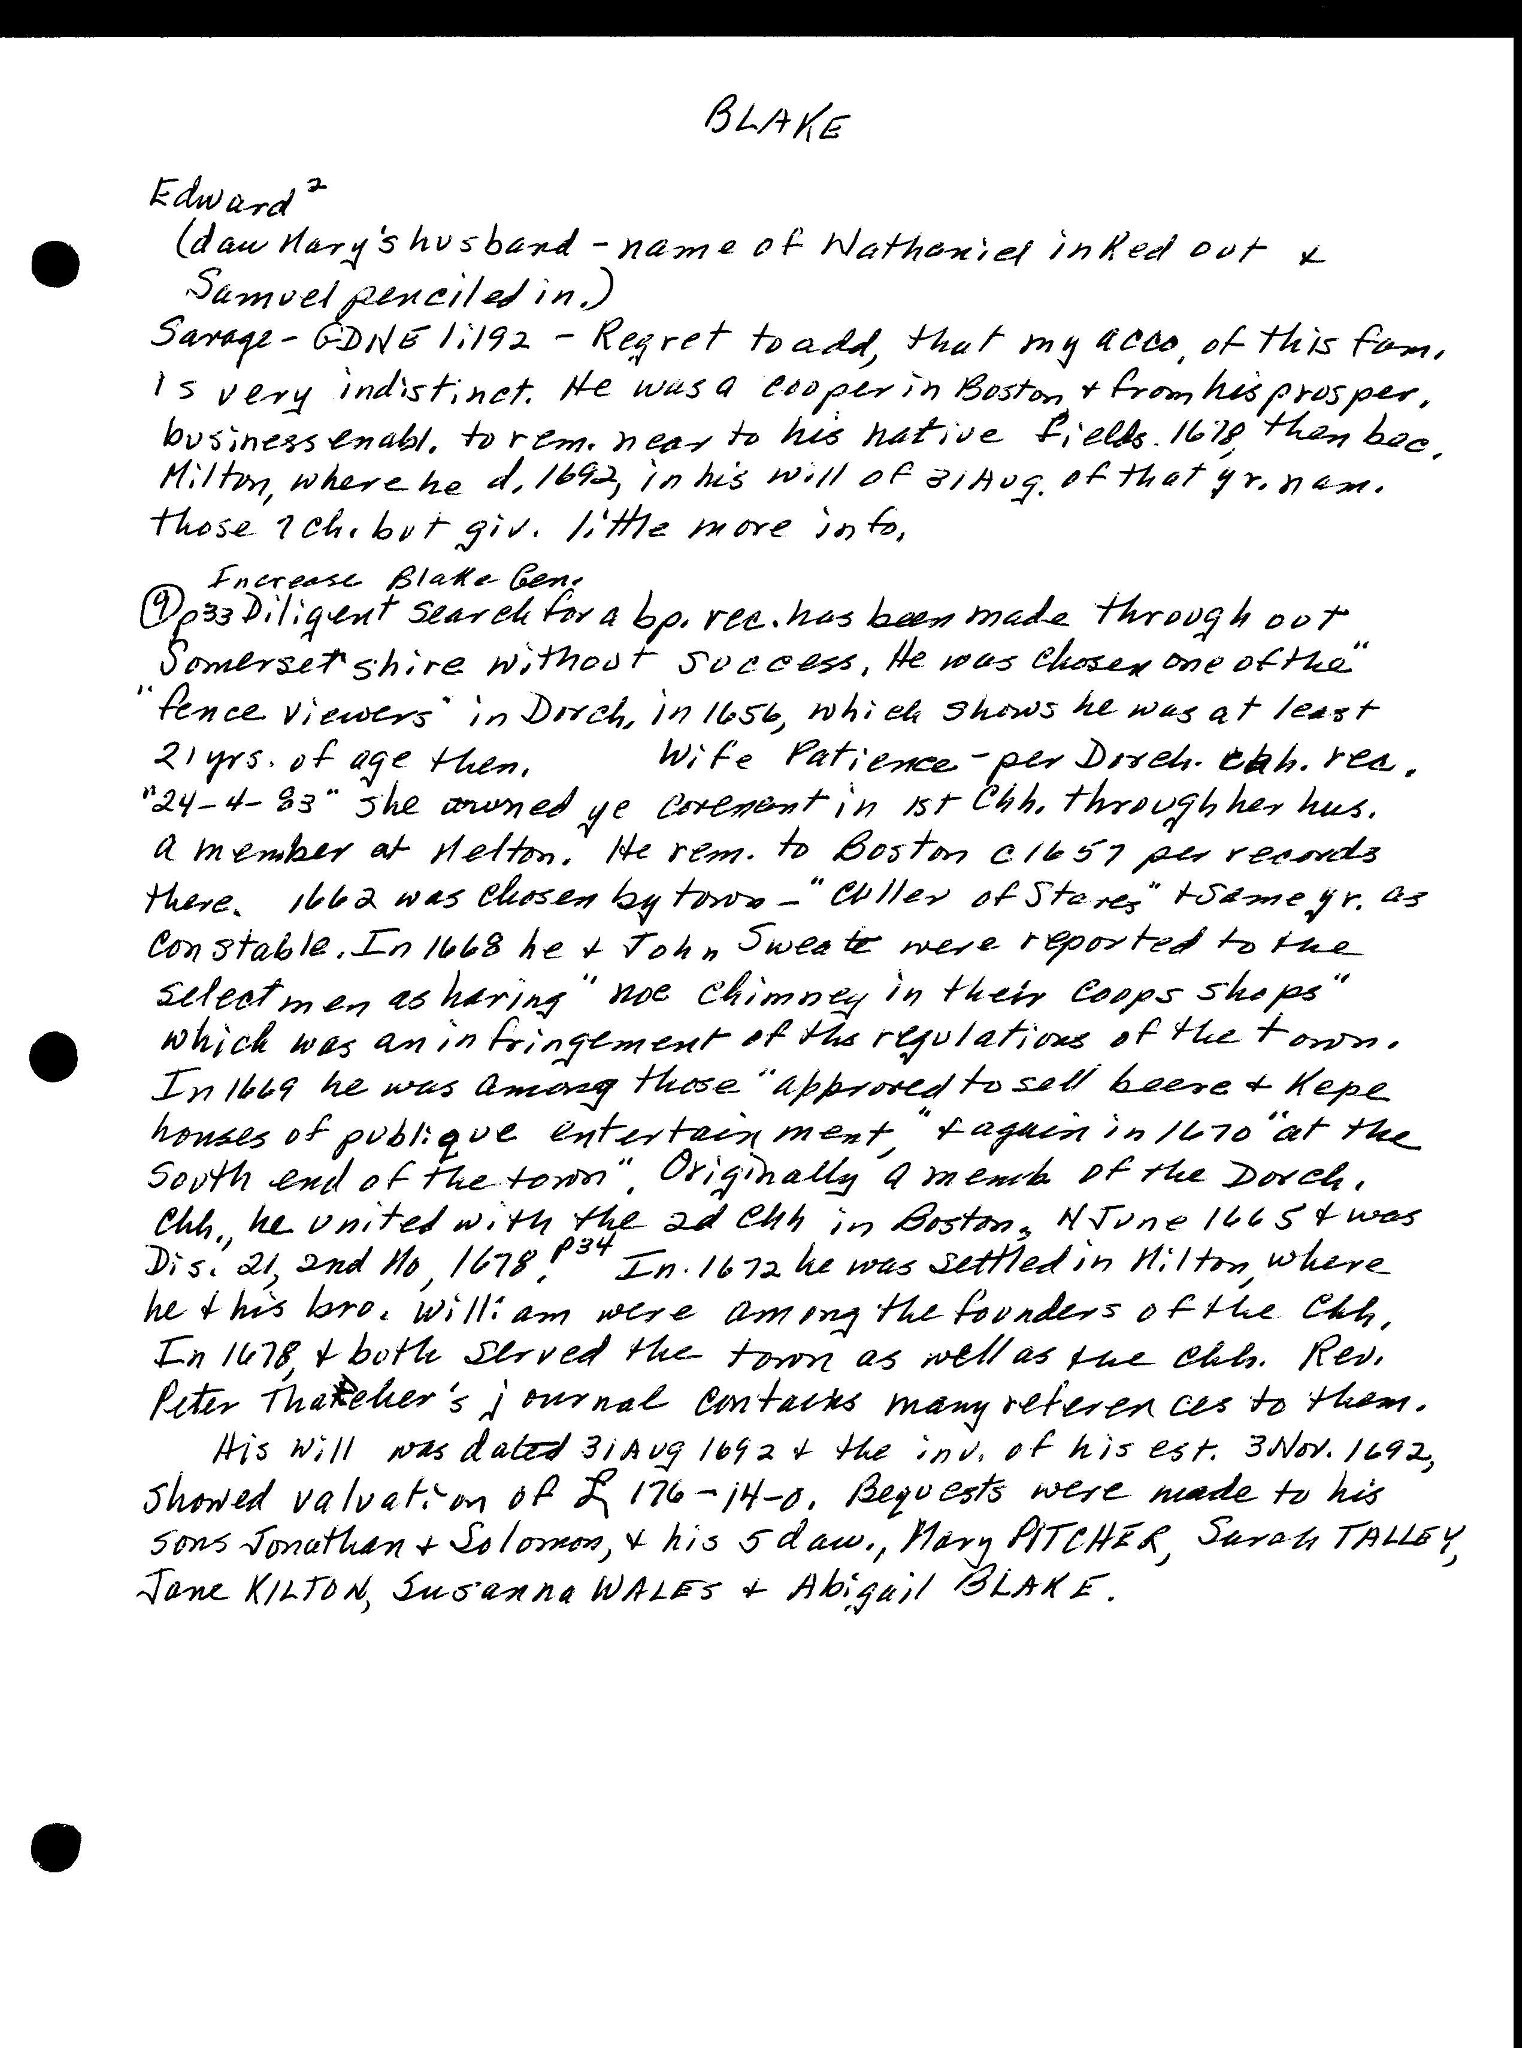 BLAKE
Edward²
(dau Mary's husband - name of Nathaniel inked out &
Samuel penciled in.)
Savage - GDNE 1:192 - Regret to add, that my acco. of this fam.
is very indistinct. He was a cooper in Boston & from his prosper.
business enabl. to rem. near to his native fields. 1678, then bec.
Milton, where he d. 1692, in his will of 31 Aug. of that yr. nam.
those 7 ch. but giv. little more info.
Increase Blake Gen.
⑨ p33 Diligent search for a bp. rec. has been made through out
Somersetshire without success. He was chosen one of the "
"fence viewers" in Dorch. in 1656, which shows he was at least
21 yrs. of age then. Wife Patience - per Dorch. chh. rec.
"24-4-83" she owned ye covenant in 1st Chh. through her hus.
a member at Melton. He rem. to Boston c1657 per records
there. 1662 was chosen by town - "Culler of Staves" & same yr. as
constable. In 1668 he & John Sweate were reported to the
selectmen as having "noe chimney in their coops shops"
which was an infringement of the regulations of the town.
In 1669 he was among those "approved to sell beere & kepe
houses of publique entertainment," & again in 1670 "at the
south end of the town". Originally a memb of the Dorch.
Chh., he united with the 2d Chh in Boston, N June 1665 & was
Dis. 21, 2nd Mo, 1678. p34 In 1672 he was settled in Milton, where
he & his bro. William were among the founders of the Chh.
In 1678, & both served the town as well as the chh. Rev.
Peter Thatcher's journal contains many references to them.
His will was dated 31 Aug 1692 & the inv. of his est. 3 Nov. 1692,
showed valuation of £ 176-14-0. Bequests were made to his
sons Jonathan & Solomon, & his 5 dau., Mary PITCHER, Sarah TALLEY,
Jane KILTON, Susanna WALES & Abigail BLAKE.